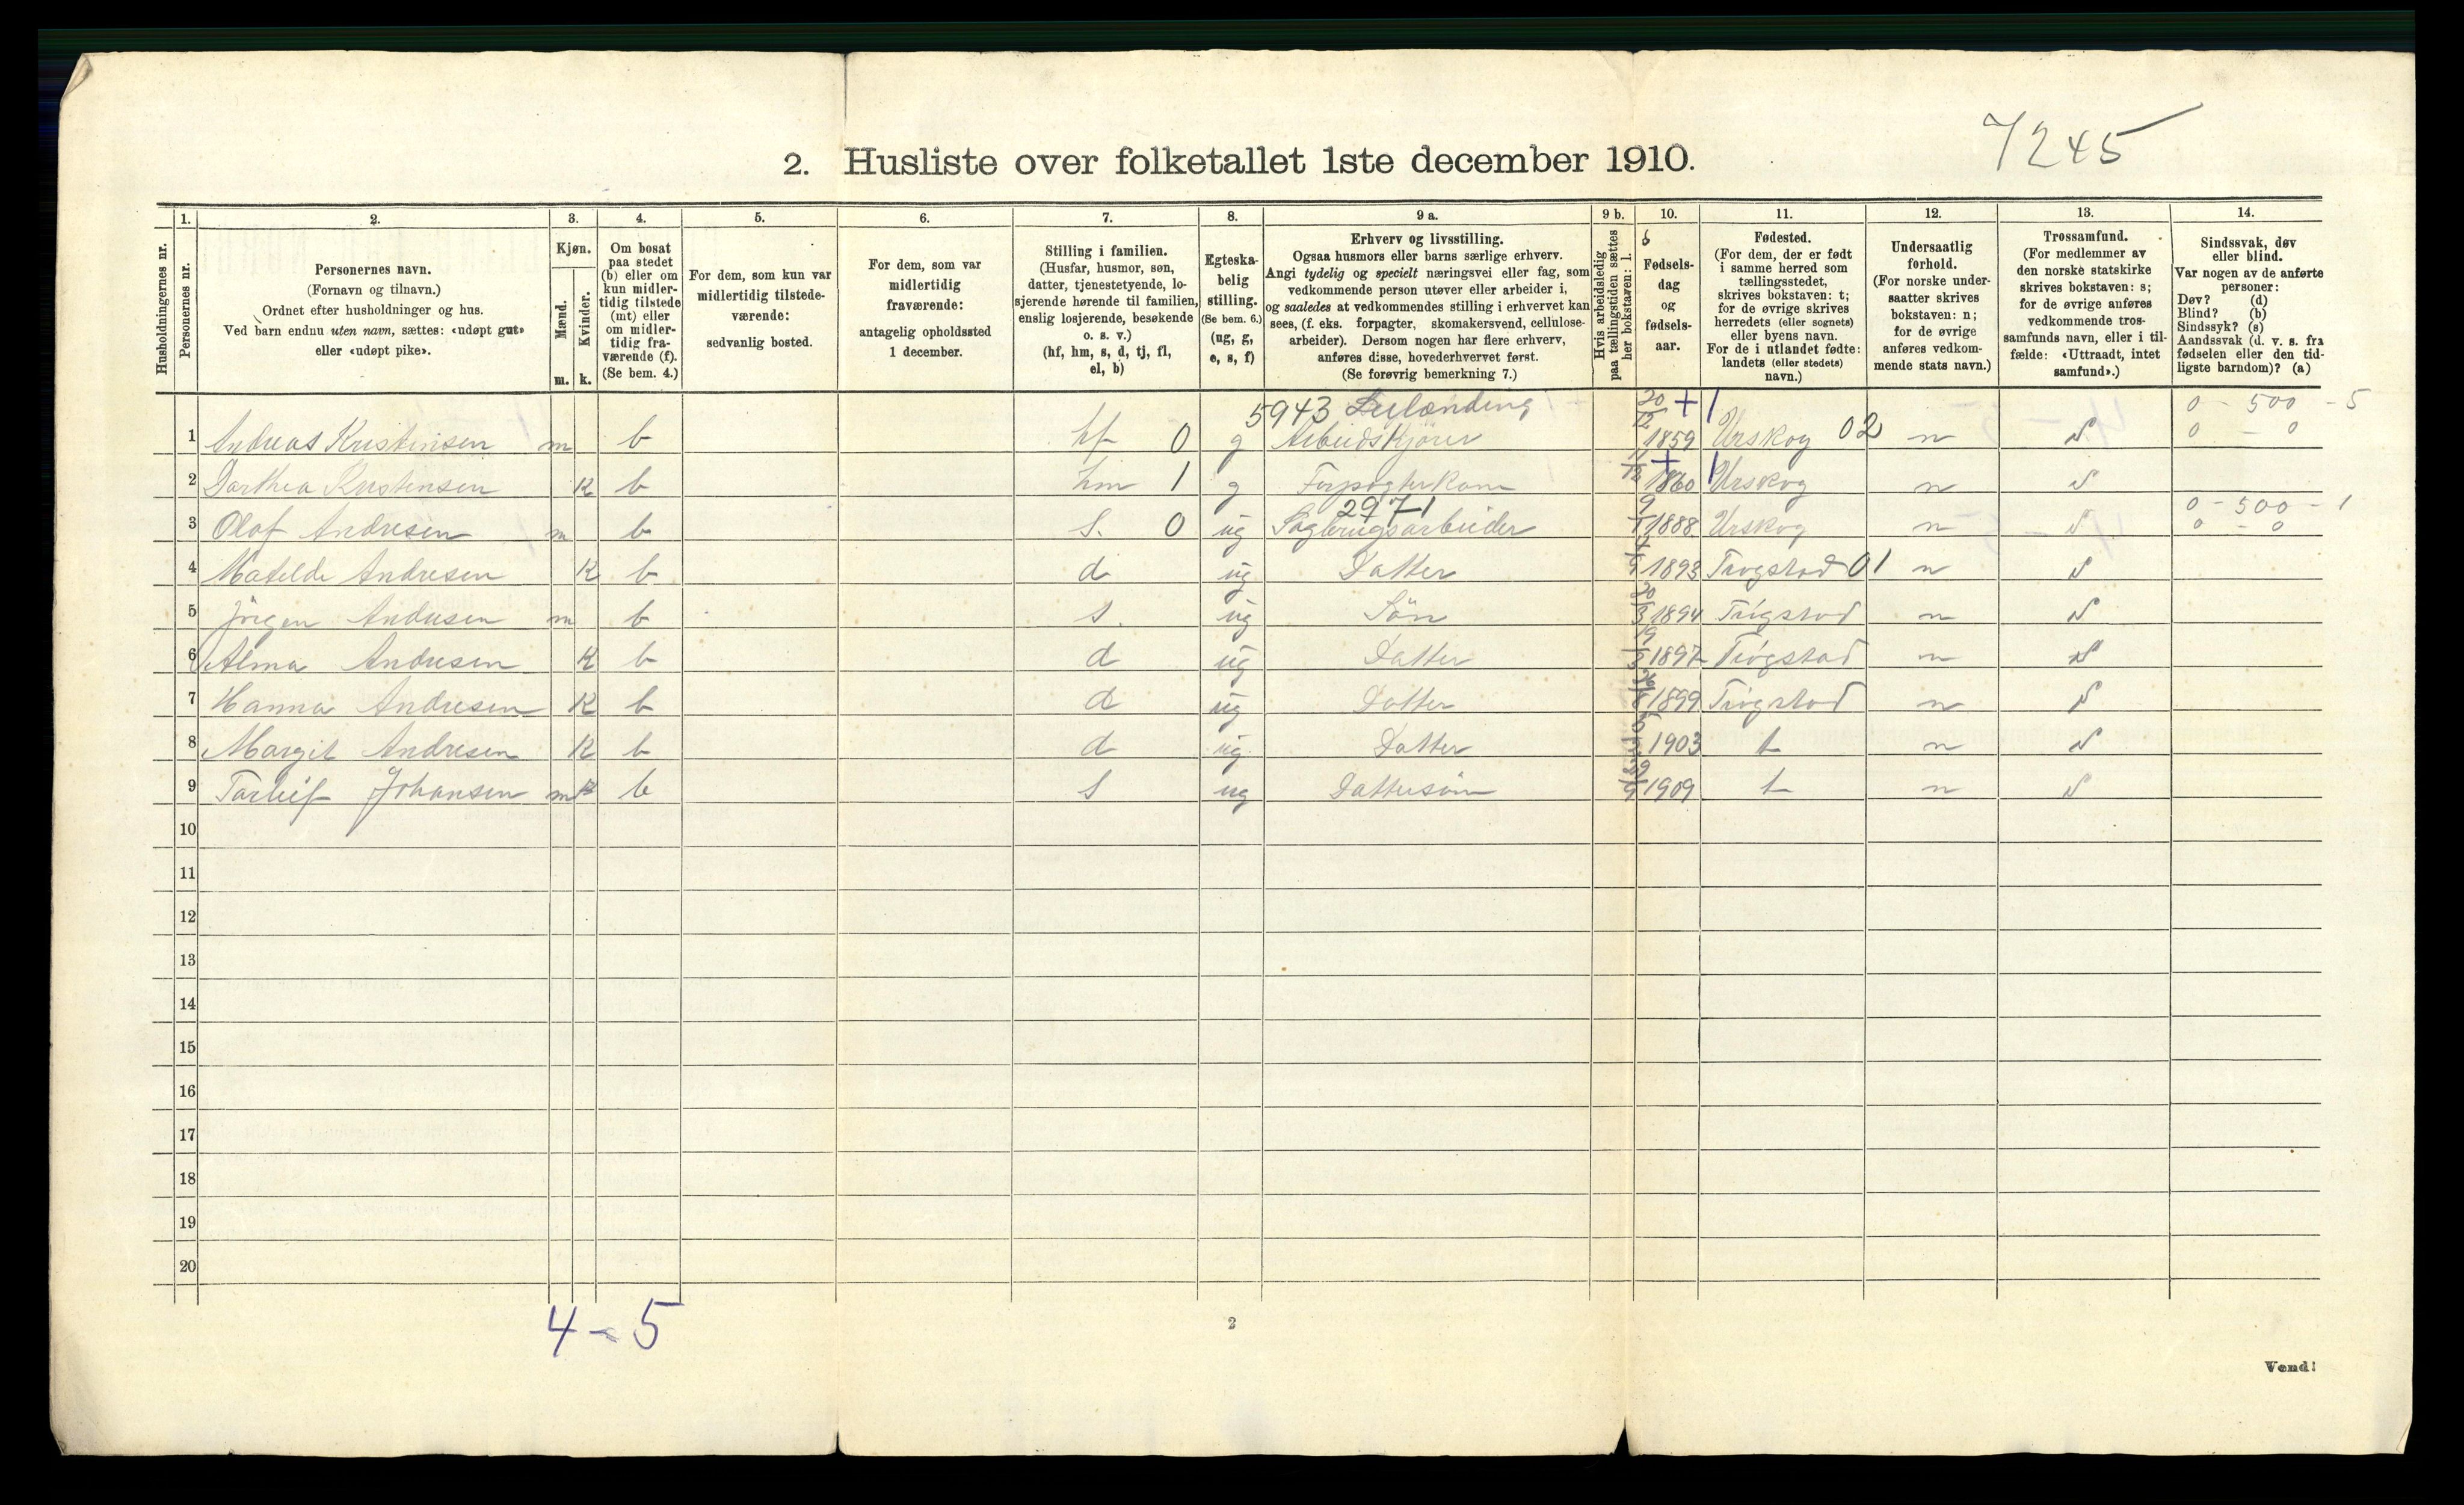 7245
2. Husliste over folketallet 1ste december 1910.
Husholdningernes nr.
1. Personernes nr.
2. Personernes navn.
(Fornavn og tilnavn.)
Ordnet efter husholdninger og hus.
Ved barn endnu uten navn, sættes: «udøpt gut»
eller «udøpt pike».
3. Kjøn.
Mænd. m.
Kvinder. k.
4. Om bosat
paa stedet
(b) eller om
kun midler-
tidig tilstede
(mt) eller
om midler-
tidig fra-
værende (f).
(Se bem. 4.)
5. For dem, som kun var
midlertidig tilstede-
værende:
sedvanlig bosted.
6. For dem, som var
midlertidig
fraværende:
antagelig opholdssted
1 december.
7. Stilling i familien.
(Husfar, husmor, søn,
datter, tjenestetyende, lo-
sjerende hørende til familien,
enslig losjerende, besøkende
o. s. v.)
(hf, hm, s, d, tj, fl,
el, b)
8. Egteska-
belig
stilling.
(Se bem. 6.)
(ug, g,
e, s, f)
9 a. Erhverv og livsstilling.
Ogsaa husmors eller barns særlige erhverv.
Angi tydelig og specielt næringsvei eller fag, som
vedkommende person utøver eller arbeider i,
og saaledes at vedkommendes stilling i erhvervet kan
sees, (f. eks. forpagter, skomakersvend, cellulose-
arbeider). Dersom nogen har flere erhverv,
anføres disse, hovederhvervet først.
(Se forøvrig bemerkning 7.)
9 b. Hvis arbeidsledig
paa tællingstiden sættes
her bokstaven: l.
10. Fødsels-
dag
og
fødsels-
aar.
11. Fødested.
(For dem, der er født
i samme herred som
tællingsstedet,
skrives bokstaven: t;
for de øvrige skrives
herredets (eller sognets)
eller byens navn.
For de i utlandet fødte:
landets (eller stedets)
navn.)
12. Undersaatlig
forhold.
(For norske under-
saatter skrives
bokstaven: n;
for de øvrige
anføres vedkom-
mende stats navn.)
13. Trossamfund.
(For medlemmer av
den norske statskirke
skrives bokstaven: s;
for de øvrige anføres
vedkommende tros-
samfunds navn, eller i til-
fælde: «Uttraadt, intet
samfund».)
14. Sindssvak, døv
eller blind.
Var nogen av de anførte
personer:
Døv? (d)
Blind? (b)
Sindssyk? (s)
Aandssvak (d. v. s. fra
fødselen eller den tid-
ligste barndom)? (a)
5943 20/12 + 1 0 - 500 - 5
1 Andreas Kristensen m b hf 0 g Arbeidskjører 1859 Urskog 02 n s 0 - 0
2 Dorthea Kristensen k b hm 1 g Forpagterkone 1860 Urskog n s
2971 0 - 500 - 1
3 Olaf Andresen m b s. 0 ug Sagbrugsarbeider 1888 Urskog n s 0 - 0
4 Matelde Andresen k b d ug Datter 1893 Trøgstad 01 n s
5 Jörgen Andresen m b s. ug Sön 20/3 1894 Trögstad n s
6 Alma Andresen k b d ug Datter 1897 Trögstad n s
7 Hanna Andresen k b d ug Datter 1899 Trögstad n s
8 Margit Andresen k b d ug Datter 1903 t n s
9 Torleif Johansen m b s ug Dattersön 1909 t n s
10
11
12
13
14
15
16
17
18
19
20
4 - 5
2
Vend!